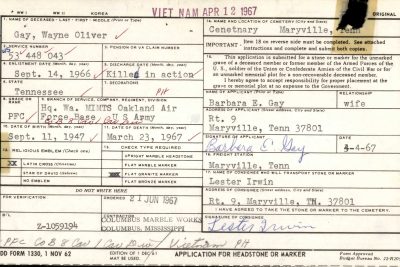 WW I WW II KOREA VIET NAM APR 12 1967
1. NAME OF DECEASED - LAST - FIRST - MIDDLE (Print or Type)
Gay, Wayne Oliver
14. NAME AND LOCATION OF CEMETERY (City and State)
Cemetary Maryville, Tenn
IMPORTANT: Item 18 on reverse side must be completed. See attached
instructions and complete and submit both copies.
2. SERVICE NUMBER
53 448 043
3. PENSION OR VA CLAIM NUMBER
15. This application is submitted for a stone or marker for the unmarked
grave of a deceased member or former member of the Armed Forces of the
U.S., soldier of the Union or Confederate Armies of the Civil War or for
an unmarked memorial plot for a non-recoverable deceased member.
I hereby agree to assign responsibility for proper placement at the
grave or memorial plot at no expense to the Government.
Sept. 14, 1966
Killed in action
6. STATE
Tennessee
PH
Barbara E. Gay
wife
Rt. 9
Maryville, Tenn 37801
8. GRADE OR RANK
PFC
9. BRANCH OF SERVICE, COMPANY, REGIMENT, DIVISION
Hq. Wa. MINTS Oakland Air
Force Base U S Army
10. DATE OF BIRTH (Month, Day, year)
Sept. 11, 1947
11. DATE OF DEATH (Month, Day, year)
March 23, 1967
SIGNATURE OF APPLICANT
Barbara E. Gay
4-4-67
16. FREIGHT STATION
Maryville, Tenn
12. RELIGIOUS EMBLEM (Check one)
LATIN CROSS (Christian)
STAR OF DAVID (Hebrew)
NO EMBLEM
13. CHECK TYPE REQUIRED
UPRIGHT MARBLE HEADSTONE
FLAT MARBLE MARKER
FLAT GRANITE MARKER
FLAT BRONZE MARKER
17. NAME OF CONSIGNEE WHO WILL TRANSPORT STONE OR MARKER
Lester Irwin
Rt. 9, Maryville, TN. 37801
DO NOT WRITE HERE
FOR VERIFICATION
ORDERED
21 JUN 1967
I HAVE AGREED TO TAKE THE STONE OR MARKER TO THE CEMETERY.
Z-1059194
COLUMBUS MARBLE WORKS
COLUMBUS, MISSISSIPPI
SIGNATURE OF CONSIGNEE
Lester Irwin
PFC Co B 8 Cav 1 Cav Div Vietnam PH
DD FORM 1330, 1 NOV 62
APPLICATION FOR HEADSTONE OR MARKER
Form Approved